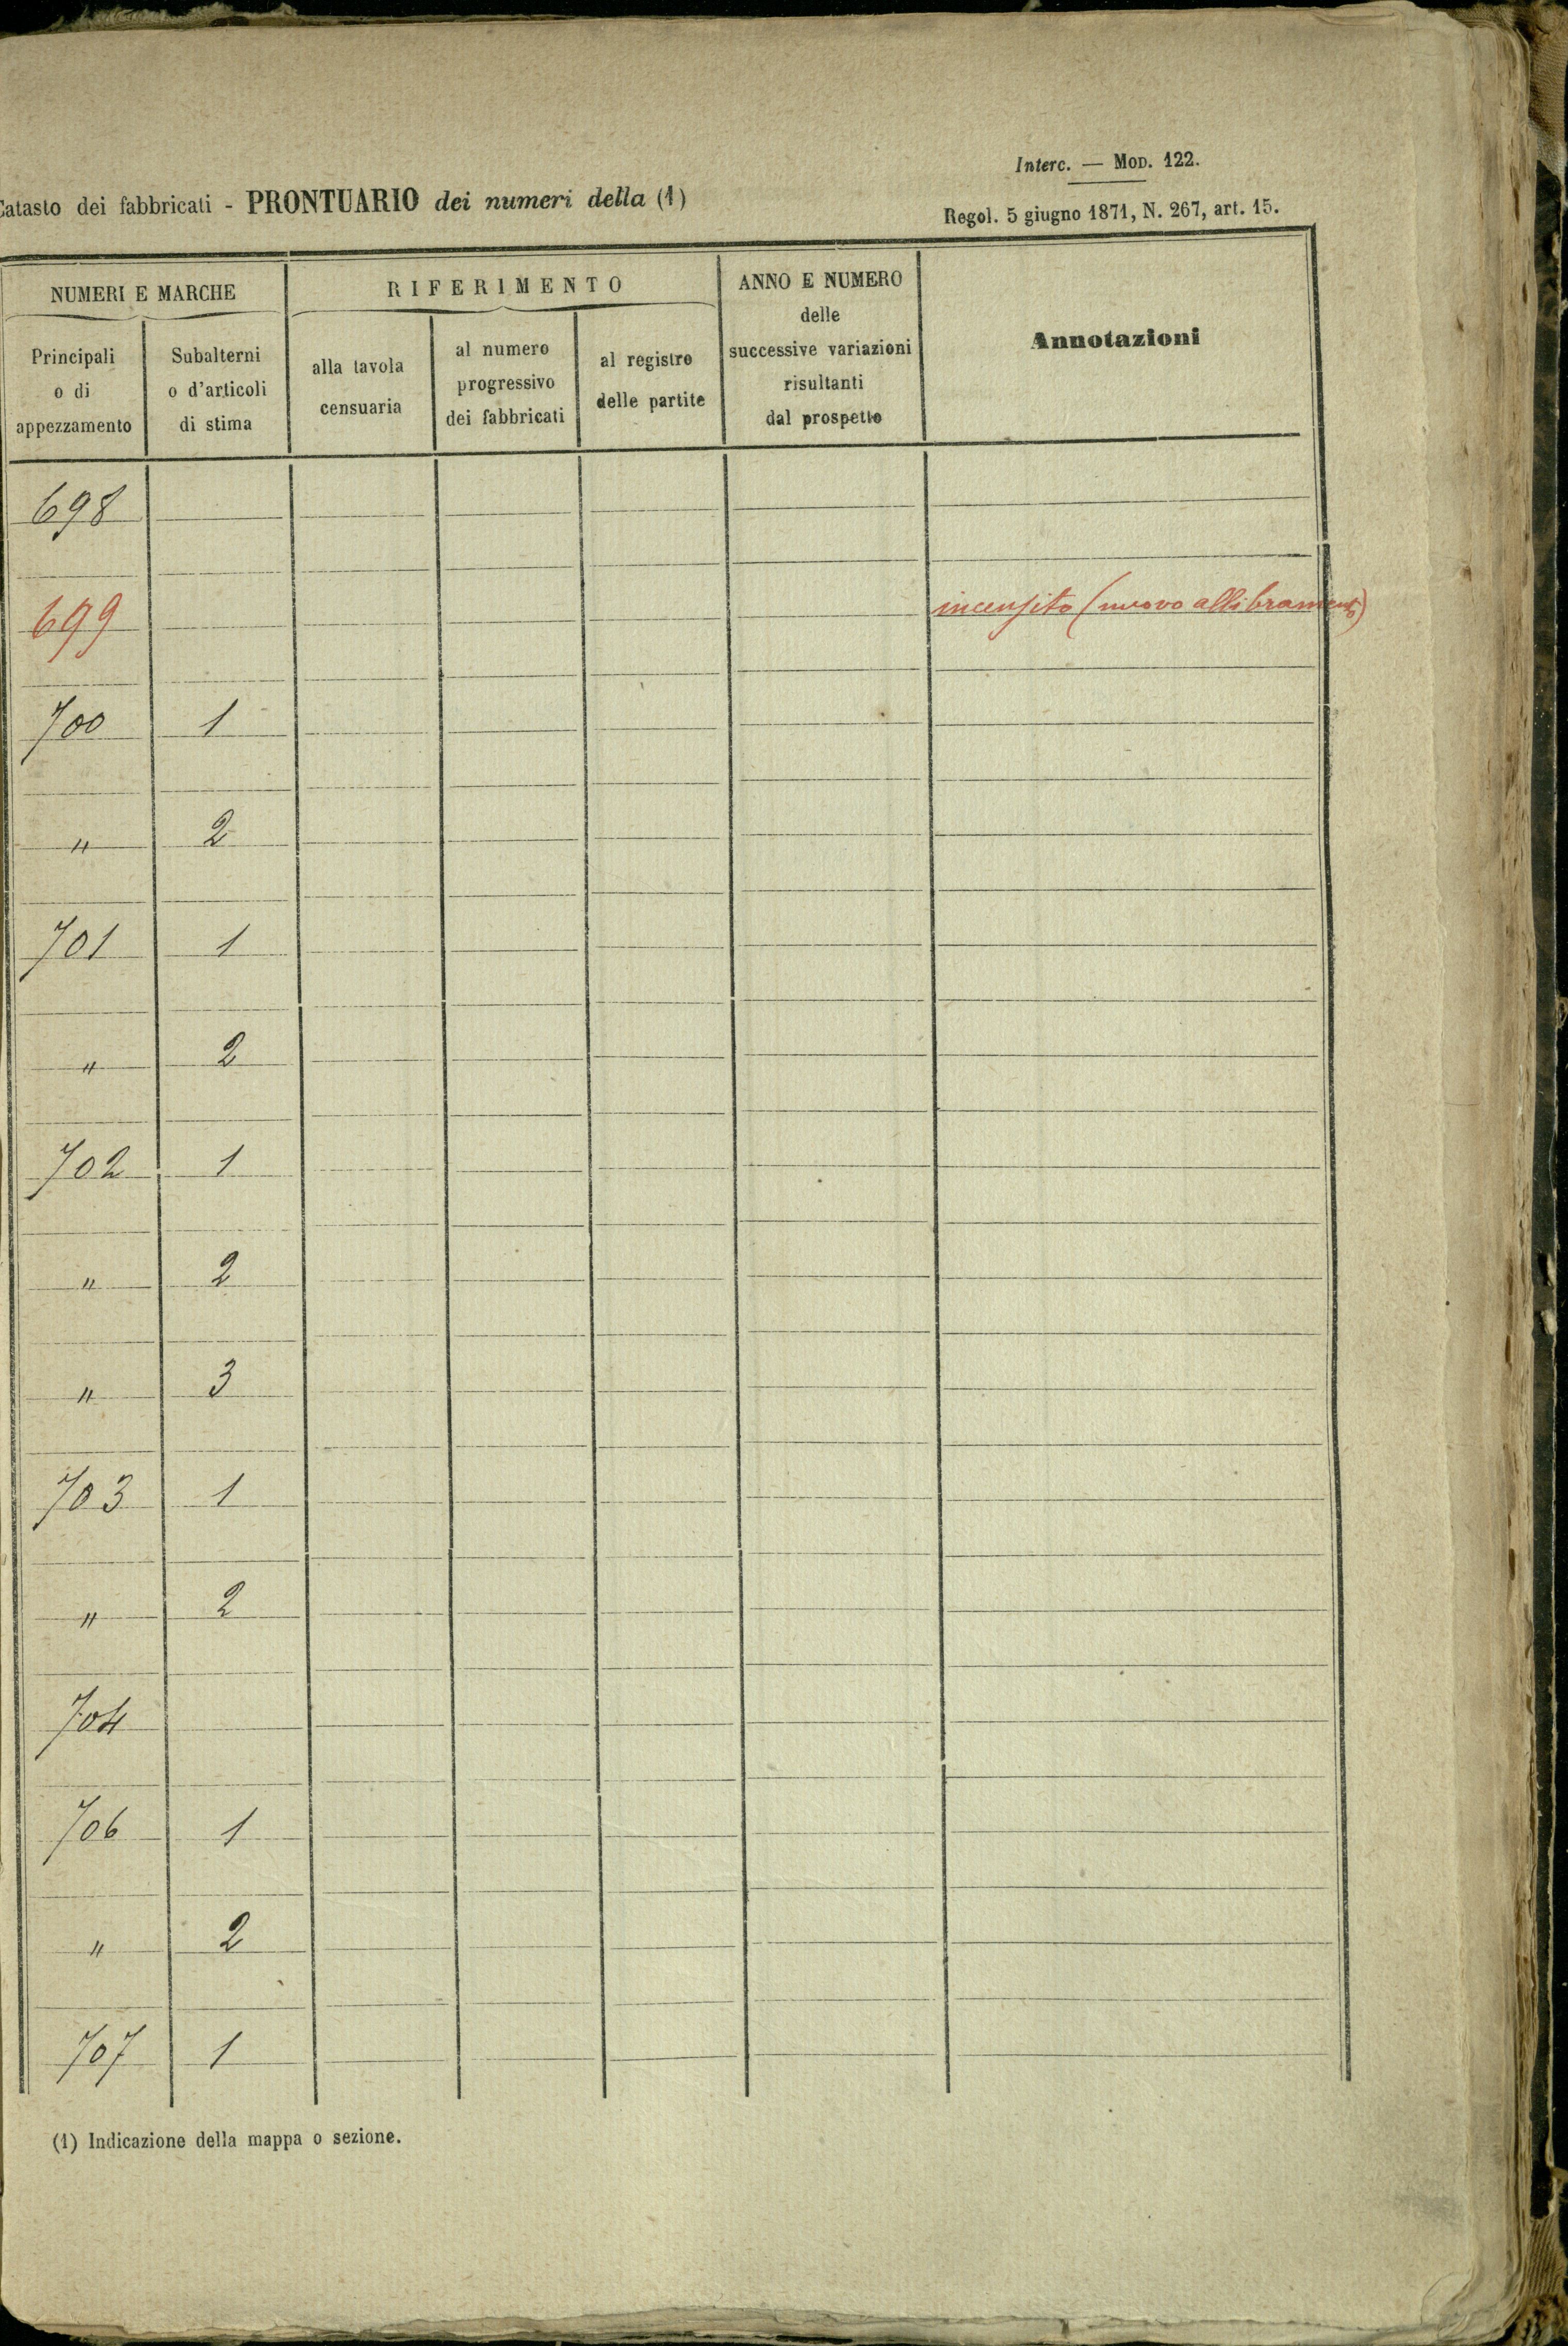 Interc. — Mod. 122.
Catasto dei fabbricati - PRONTUARIO dei numeri della (1)
Regol. 5 giugno 1871, N. 267, art. 15.
NUMERI E MARCHE
RIFERIMENTO
ANNO E NUMERO
delle
successive variazioni
risultanti
dal prospetto
Annotazioni
Principali
o di
appezzamento
Subalterni
o d'articoli
di stima
alla tavola
censuaria
al numero
progressivo
dei fabbricati
al registro
delle partite
698
699 incensito (nuovo allibramento)
700 1
" 2
701 1
" 2
702 1
" 2
" 3
703 1
" 2
704
706 1
" 2
707 1
(1) Indicazione della mappa o sezione.